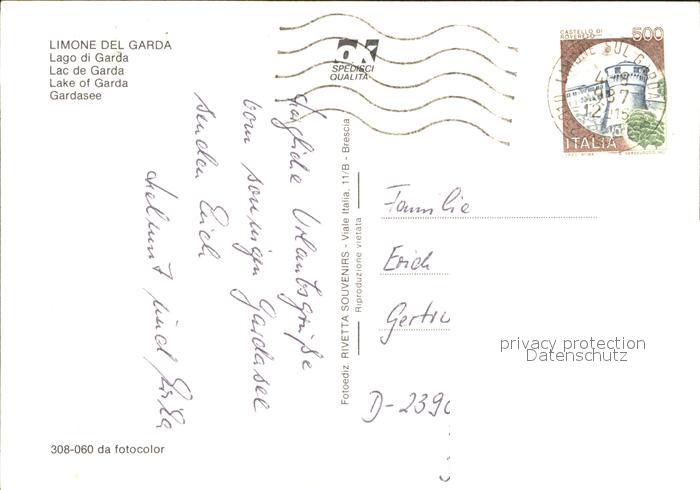 LIMONE DEL GARDA
Lago di Garda
Lac de Garda
Lake of Garda
Gardasee
SPEDISCI
QUALITÀ
CASTELLO DI
ROVERETO
500
LIMONE SUL GARDA
12
ITALIA
Herzliche Urlaubsgrüße
vom sonnigen Gardasee
senden Euch
Helmut und
Fotoediz. RIVETTA SOUVENIRS - Viale Italia, 11/B - Brescia
Riproduzione vietata
Familie
Erich
Gertru
D-239
privacy protection
Datenschutz
308-060 da fotocolor